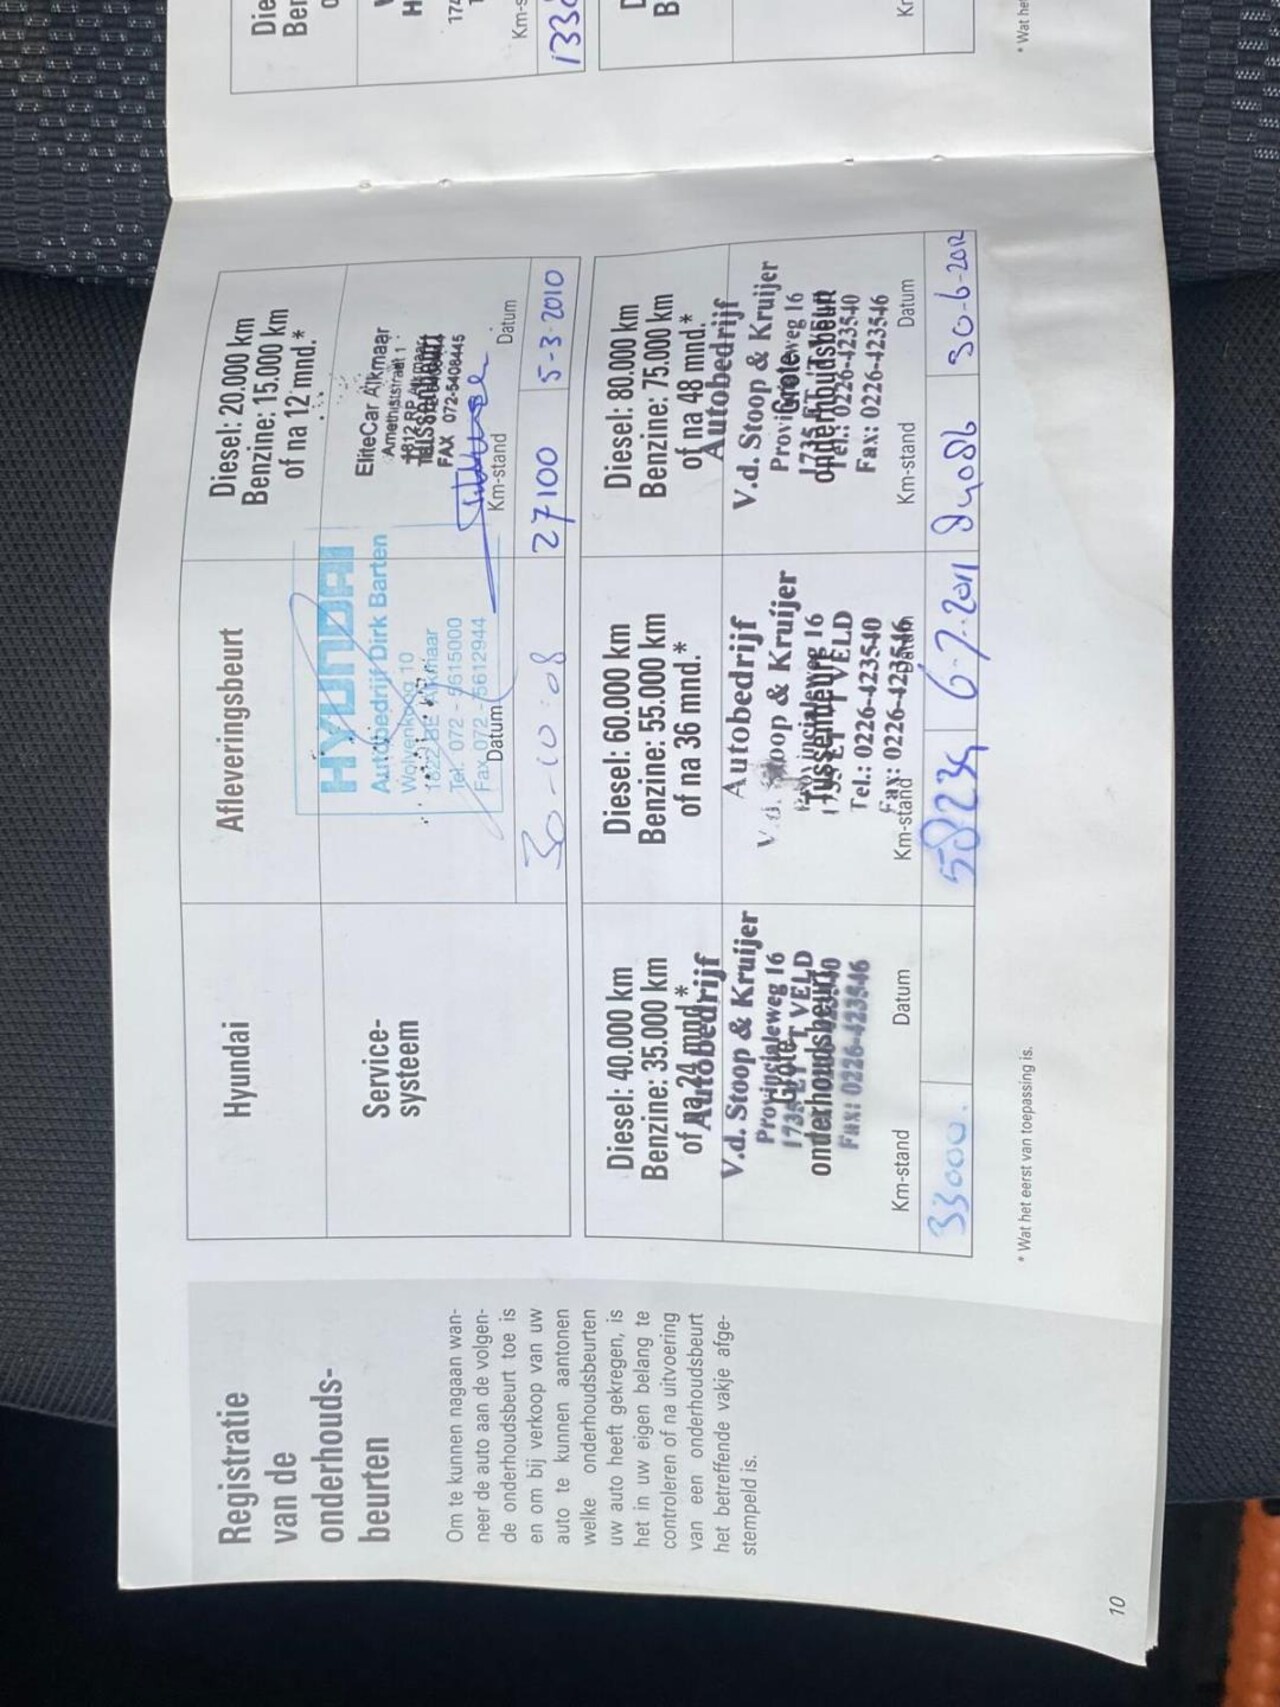 Registratie
van de
onderhouds-
beurten
Om te kunnen nagaan wan-
neer de auto aan de volgen-
de onderhoudsbeurt toe is
en om bij verkoop van uw
auto te kunnen aantonen
welke onderhoudsbeurten
uw auto heeft gekregen, is
het in uw eigen belang te
controleren of na uitvoering
van een onderhoudsbeurt
het betreffende vakje afge-
stempeld is.
Hyundai
Service-
systeem
Afleveringsbeurt
HYUNDAI
Autobedrijf Dirk Barten
Wolvenkoog 10
1822 BE Alkmaar
Tel. 072 - 5615000
Fax 072 - 5612944
Datum
30-10-08
Diesel: 20.000 km
Benzine: 15.000 km
of na 12 mnd.*
EliteCar Alkmaar
Amethiststraat 1
1812 RP Alkmaar
Tussenbeurt
FAX 072-5408445
Km-stand
Datum
27100
5-3-2010
Diesel: 40.000 km
Benzine: 35.000 km
of na 24 mnd *
Autobedrijf
V.d. Stoop & Kruijer
Provincialeweg 16
Grote
'T VELD
onderhoudsbeurt
Fax: 0226-423546
Km-stand
Datum
33000.
Diesel: 60.000 km
Benzine: 55.000 km
of na 36 mnd.*
Autobedrijf
V.d. Stoop & Kruijer
Provincialeweg 16
Tussenbeurt
'T VELD
Tel.: 0226-423540
Fax: 0226-423546
Km-stand
Datum
6-7-2011
Diesel: 80.000 km
Benzine: 75.000 km
of na 48 mnd.*
Autobedrijf
V.d. Stoop & Kruijer
Provincialeweg 16
Grote
1735 ET
onderhoudsbeurt
Tel.: 0226-423540
Fax: 0226-423546
Km-stand
Datum
30-6-2012
* Wat het eerst van toepassing is.
10
Die
Ber
Km-s
Kr
* Wat he